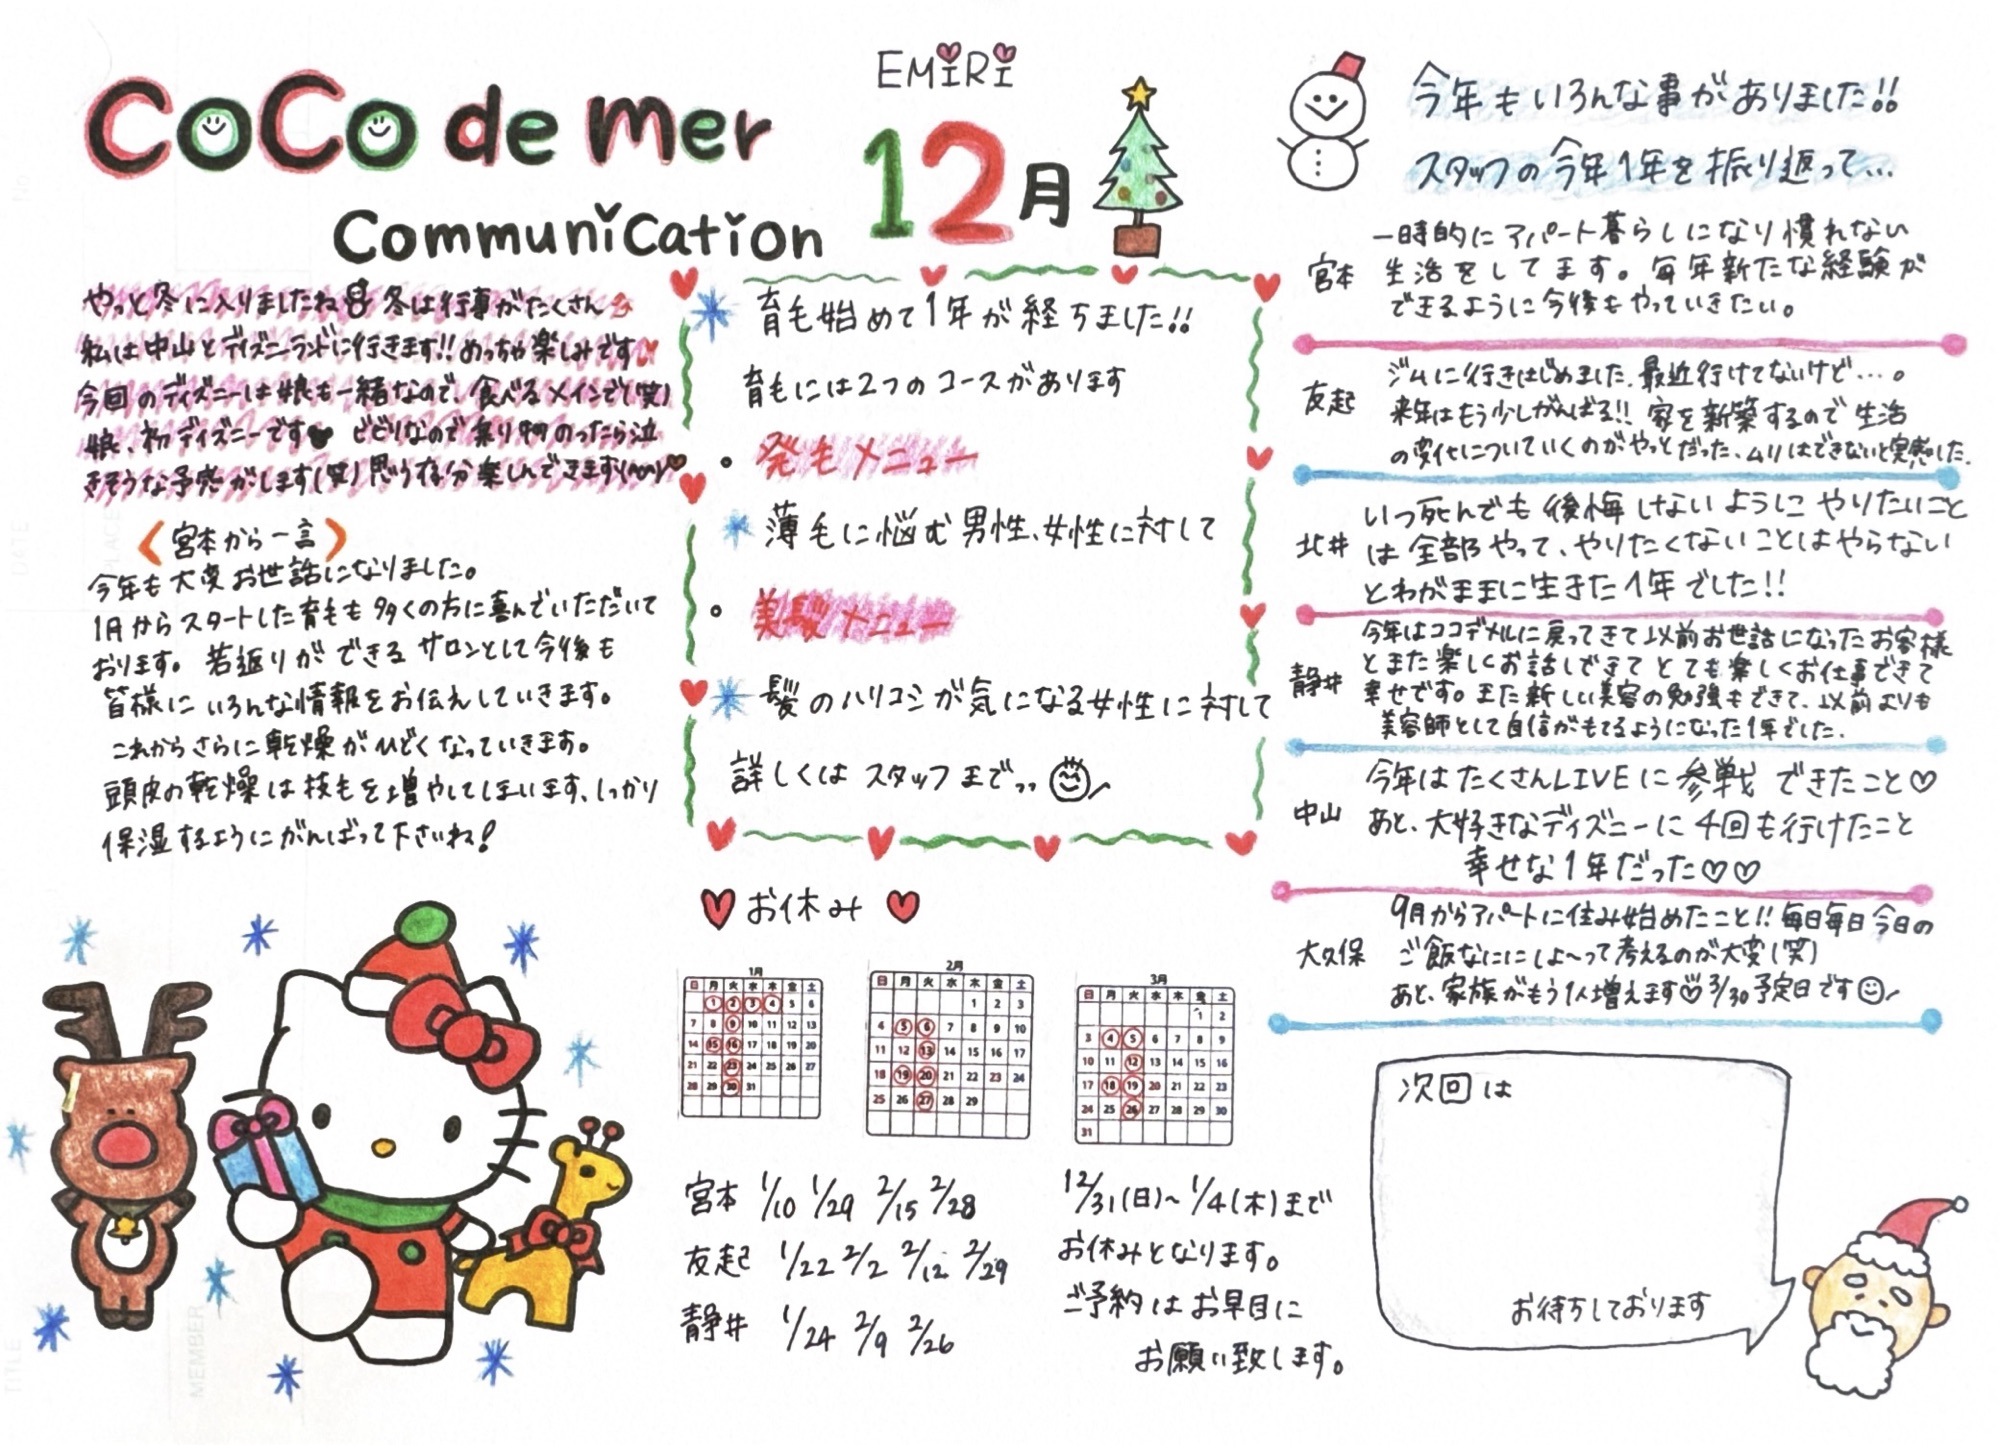 CoCo de mer
Communication
EMIRI
12月
やっと冬に入りましたね 冬は行事がたくさん
私は中山とディズニーランドに行きます!! めっちゃ楽しみです
今回のディズニーは娘も一緒なので、食べるメインで(笑)
娘、初ディズニーです ビビリなので乗り物のったら泣
きそうな予感がします(笑) 思う存分楽しんできます(^^)
〈宮本から一言〉
今年も大変お世話になりました。
1月からスタートした育毛も多くの方に喜んでいただいて
おります。若返りができるサロンとして今後も
皆様にいろんな情報をお伝えしていきます。
これからさらに乾燥がひどくなっていきます。
頭皮の乾燥は枝毛を増やしてしまいます、しっかり
保湿するようにがんばって下さいね!
育毛始めて1年が経ちました!!
育毛には2つのコースがあります
・発毛メニュー
薄毛に悩む男性、女性に対して
・美髪メニュー
髪のハリコシが気になる女性に対して
詳しくはスタッフまで
お休み
1月
日 月 火 水 木 金 土
1 2 3 4 5 6
7 8 9 10 11 12 13
14 15 16 17 18 19 20
21 22 23 24 25 26 27
28 29 30 31
2月
日 月 火 水 木 金 土
1 2 3
4 5 6 7 8 9 10
11 12 13 14 15 16 17
18 19 20 21 22 23 24
25 26 27 28 29
3月
日 月 火 水 木 金 土
1 2
3 4 5 6 7 8 9
10 11 12 13 14 15 16
17 18 19 20 21 22 23
24 25 26 27 28 29 30
31
宮本 1/10 1/29 2/15 2/28
友起 1/22 2/2 2/12 2/29
静井 1/24 2/9 2/26
12/31(日)~1/4(木)まで
お休みとなります。
ご予約はお早目に
お願い致します。
今年もいろんな事がありました!!
スタッフの今年1年を振り返って...
宮本
一時的にアパート暮らしになり慣れない
生活をしてます。毎年新たな経験が
できるように今後もやっていきたい。
友起
ジムに行きはじめました。最近行けてないけど...。
来年はもう少しがんばる!! 家を新築するので生活
の変化についていくのがやっとだった、ムリはできないと実感した。
北井
いつ死んでも後悔しないようにやりたいこと
は全部やって、やりたくないことはやらない
とわがままに生きた1年でした!!
静井
今年はココデメルに戻ってきて以前お世話になったお客様
とまた楽しくお話しできてとても楽しくお仕事できて
幸せです。また新しい美容の勉強もできて、以前よりも
美容師として自信がもてるようになった1年でした。
中山
今年はたくさんLIVEに参戦できたこと♡
あと、大好きなディズニーに4回も行けたこと
幸せな1年だった♡♡
大久保
9月からアパートに住み始めたこと!! 毎日毎日今日の
ご飯なににしよ~って考えるのが大変(笑)
あと、家族がもう1人増えます♡ 3/30予定日です
次回は
お待ちしております
DATE
PLACE
TITLE
MEMBER
No